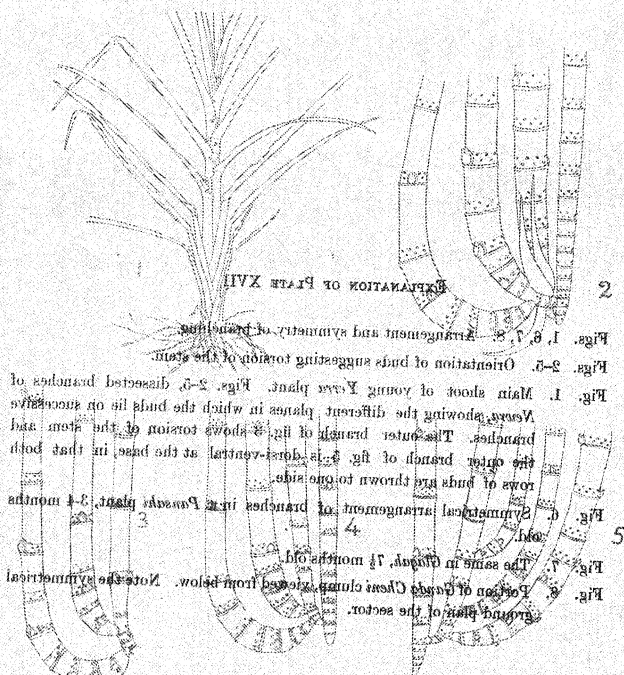 EXPLANATION OF PLATE XVII
Figs. 1, 6, 7, 8. Arrangement and symmetry of branching.
Figs. 2–5. Orientation of buds suggesting torsion of the stem.
Fig. 1. Main shoot of young Yerra plant. Figs. 2–5, dissected branches of
Neera, showing the different planes in which the buds lie on successive
branches. The outer branch of fig. 3 shows torsion of the stem and
the outer branch of fig. 5 is dorsi-ventral at the base, in that both
rows of buds are thrown to one side.
Fig. 6. Symmetrical arrangement of branches in a Pansahi plant, 3-4 months
old.
Fig. 7. The same in Glagah, 7½ months old.
Fig. 8. Portion of Ganda Cheni clump, viewed from below. Note the symmetrical
ground plan of the sector.
2
3
4
5